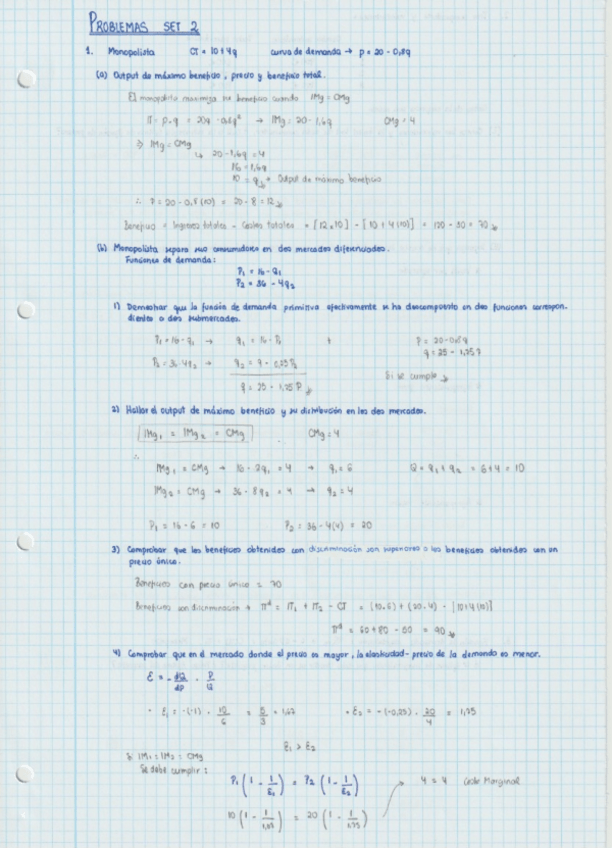 PROBLEMAS SET 2
1. Monopolista CT = 10+4q curva de demanda → p = 20 - 0,8q
(a) Output de máximo beneficio, precio y beneficio total.
El monopolista maximiza su beneficio cuando IMg = CMg
IT = p·q = 20q - 0,8q² → IMg = 20 - 1,6q CMg = 4
⇒ IMg = CMg
↳ 20 - 1,6q = 4
16 = 1,6q
10 = q Output de máximo beneficio
∴ P = 20 - 0,8(10) = 20 - 8 = 12
Beneficio = Ingresos totales - Costes totales = [12·10] - [10 + 4(10)] = 120 - 50 = 70
(b) Monopolista separa sus consumidores en dos mercados diferenciados.
Funciones de demanda:
P₁ = 16 - q₁
P₂ = 36 - 4q₂
1) Demostrar que la función de demanda primitiva efectivamente se ha descompuesto en dos funciones correspon-
dientes a dos submercados.
P₁ = 16 - q₁ → q₁ = 16 - P₁ p = 20 - 0,8q
q = 25 - 1,25P
P₂ = 36 - 4q₂ → q₂ = 9 - 0,25P₂
q = 25 - 1,25P Sí se cumple
2) Hallar el output de máximo beneficio y su distribución en los dos mercados.
IMg₁ = IMg₂ = CMg CMg = 4
∴
IMg₁ = CMg → 16 - 2q₁ = 4 → q₁ = 6 Q = q₁ + q₂ = 6+4 = 10
IMg₂ = CMg → 36 - 8q₂ = 4 → q₂ = 4
P₁ = 16 - 6 = 10 P₂ = 36 - 4(4) = 20
3) Comprobar que los beneficios obtenidos con discriminación son superiores a los beneficios obtenidos con un
precio único.
Beneficios con precio único = 70
Beneficios con discriminación → π^d = IT₁ + IT₂ - CT = (10·6) + (20·4) - [10+4(10)]
π^d = 60 + 80 - 50 = 90
4) Comprobar que en el mercado donde el precio es mayor, la elasticidad-precio de la demanda es menor.
Ɛ = - dq/dp · P/q
· Ɛ₁ = -(-1) · 10/6 = 5/3 = 1,67 · Ɛ₂ = -(-0,25) · 20/4 = 1,25
Ɛ₁ > Ɛ₂
Si IM₁ = IM₂ = CMg
Se debe cumplir:
P₁ (1 - 1/Ɛ₁) = P₂ (1 - 1/Ɛ₂) 4 = 4 Coste Marginal
10 (1 - 1/1,67) = 20 (1 - 1/1,25)